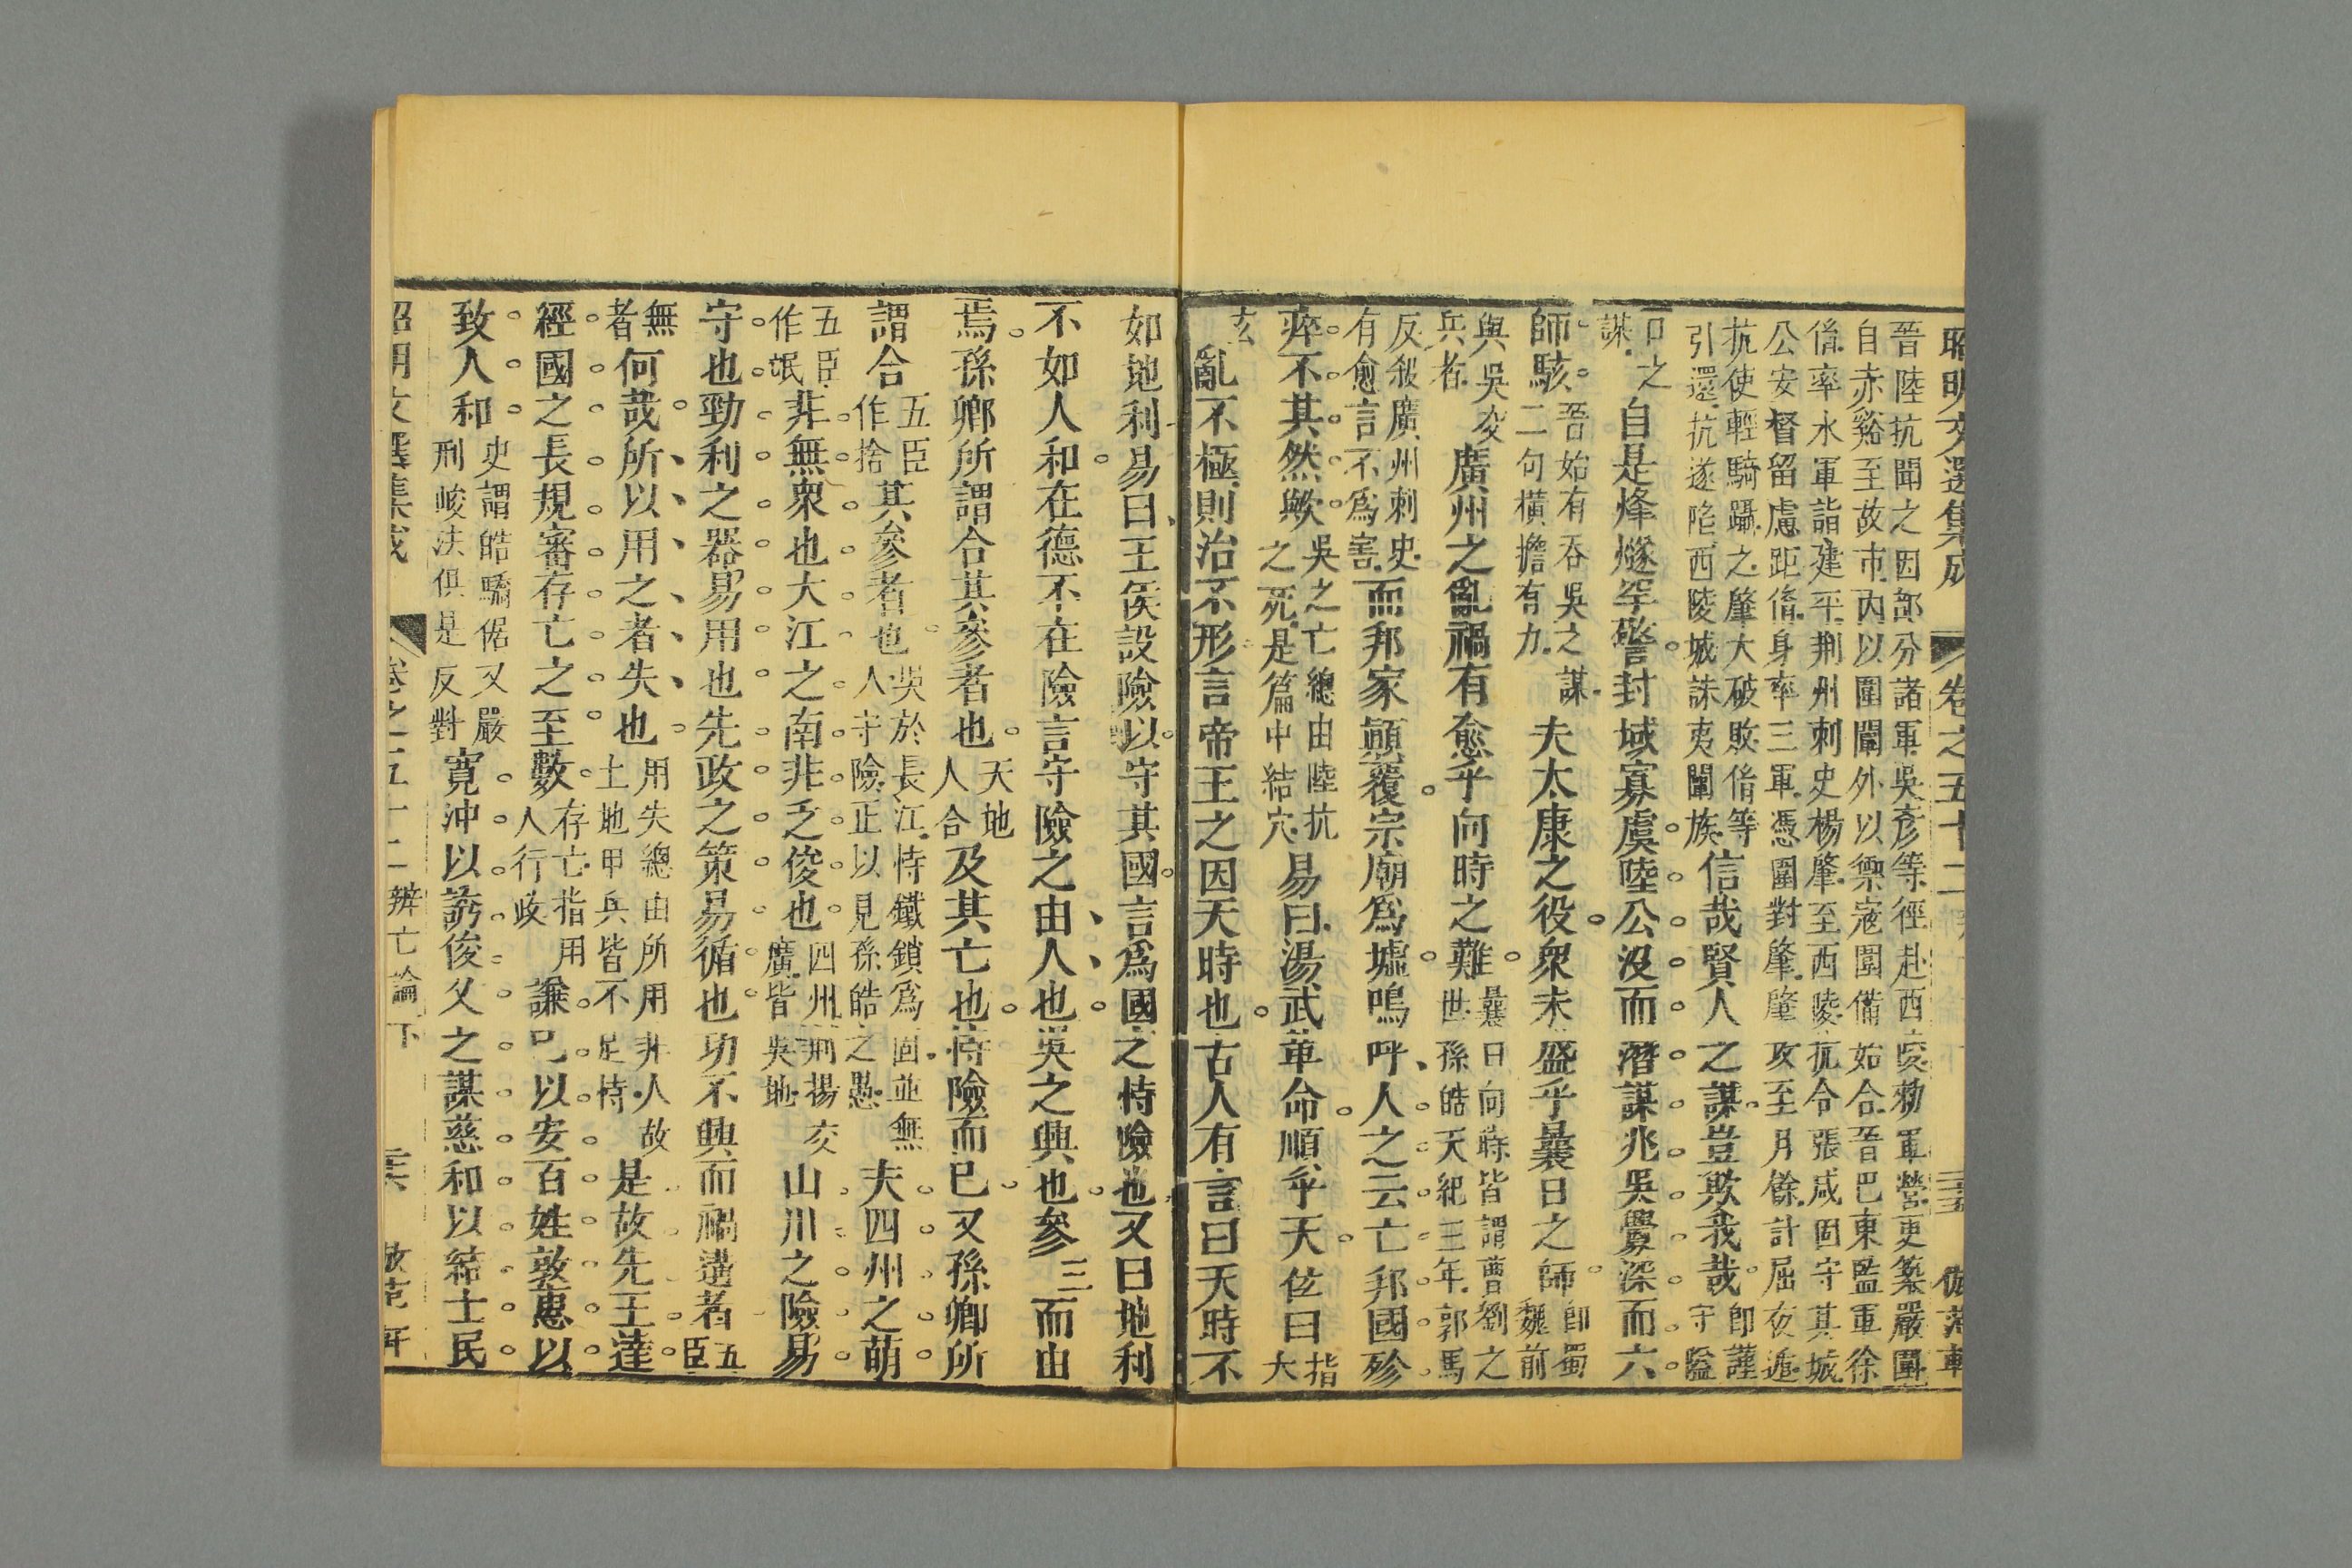 昭明文選集成 卷之五十二
晉陸抗聞之因部分諸軍吳彥等徑赴西陵勑軍營更築嚴圍
自赤谿至故市內以圍闡外以禦寇圍備始合晉巴東監軍徐
偹率水軍詣建平荆州刺史楊肇至西陵抗令張咸固守其城
公安督留慮距偹身率三軍憑圍對肇肇攻至月餘計屈夜遁
抗使輕騎躡之肇大破敗偹等
引還抗遂陷西陵城誅夷闡族
信哉賢人之謀豈欺我哉
即謹
守隘
之
謀
自是烽燧罕警封域寡虞陸公沒而潛謀兆吳釁深而六
師駭
吾始有吞吳之謀
二句橫擔有力
夫太康之役衆未盛乎曩日之師
即蜀
魏前
與吳交
兵者
廣州之亂禍有愈乎向時之難
曩日向時皆謂曹劉之
世孫皓天紀三年郭馬
反殺廣州刺史
有愈言不爲害
而邦家顚覆宗廟爲墟嗚呼人之云亡邦國殄
瘁不其然歟
吳之亡總由陸抗
之死是篇中結穴
易曰湯武革命順乎天佐曰
指
大
玄
亂不極則治不形言帝王之因天時也古人有言曰天時不
如地利易曰王侯設險以守其國言爲國之恃險也又曰地利
不如人和在德不在險言守險之由人也吳之興也參三而由
焉孫卿所謂合其參者也
天地
人合
及其亡也恃險而已又孫卿所
謂合
五臣
作捨
其參者也
吳於長江恃鐵鎖爲固並無
人守險正以見孫皓之愚
夫四州之萌
五臣
作氓
非無衆也大江之南非乏俊也
四州荆揚交
廣皆吳地
山川之險易
守也勁利之器易用也先政之策易循也功不興而禍遘者
五
臣
無
者
何哉所以用之者失也
用失總由所用非人故
土地甲兵皆不足恃
是故先王達
經國之長規審存亡之至數
存亡指用
人行政
謙己以安百姓敦惠以
致人和
史謂皓驕倨又嚴
刑峻法俱是反對
寬沖以誘俊乂之謀慈和以結士民
昭明文選集成 卷之五十二 辨亡論下